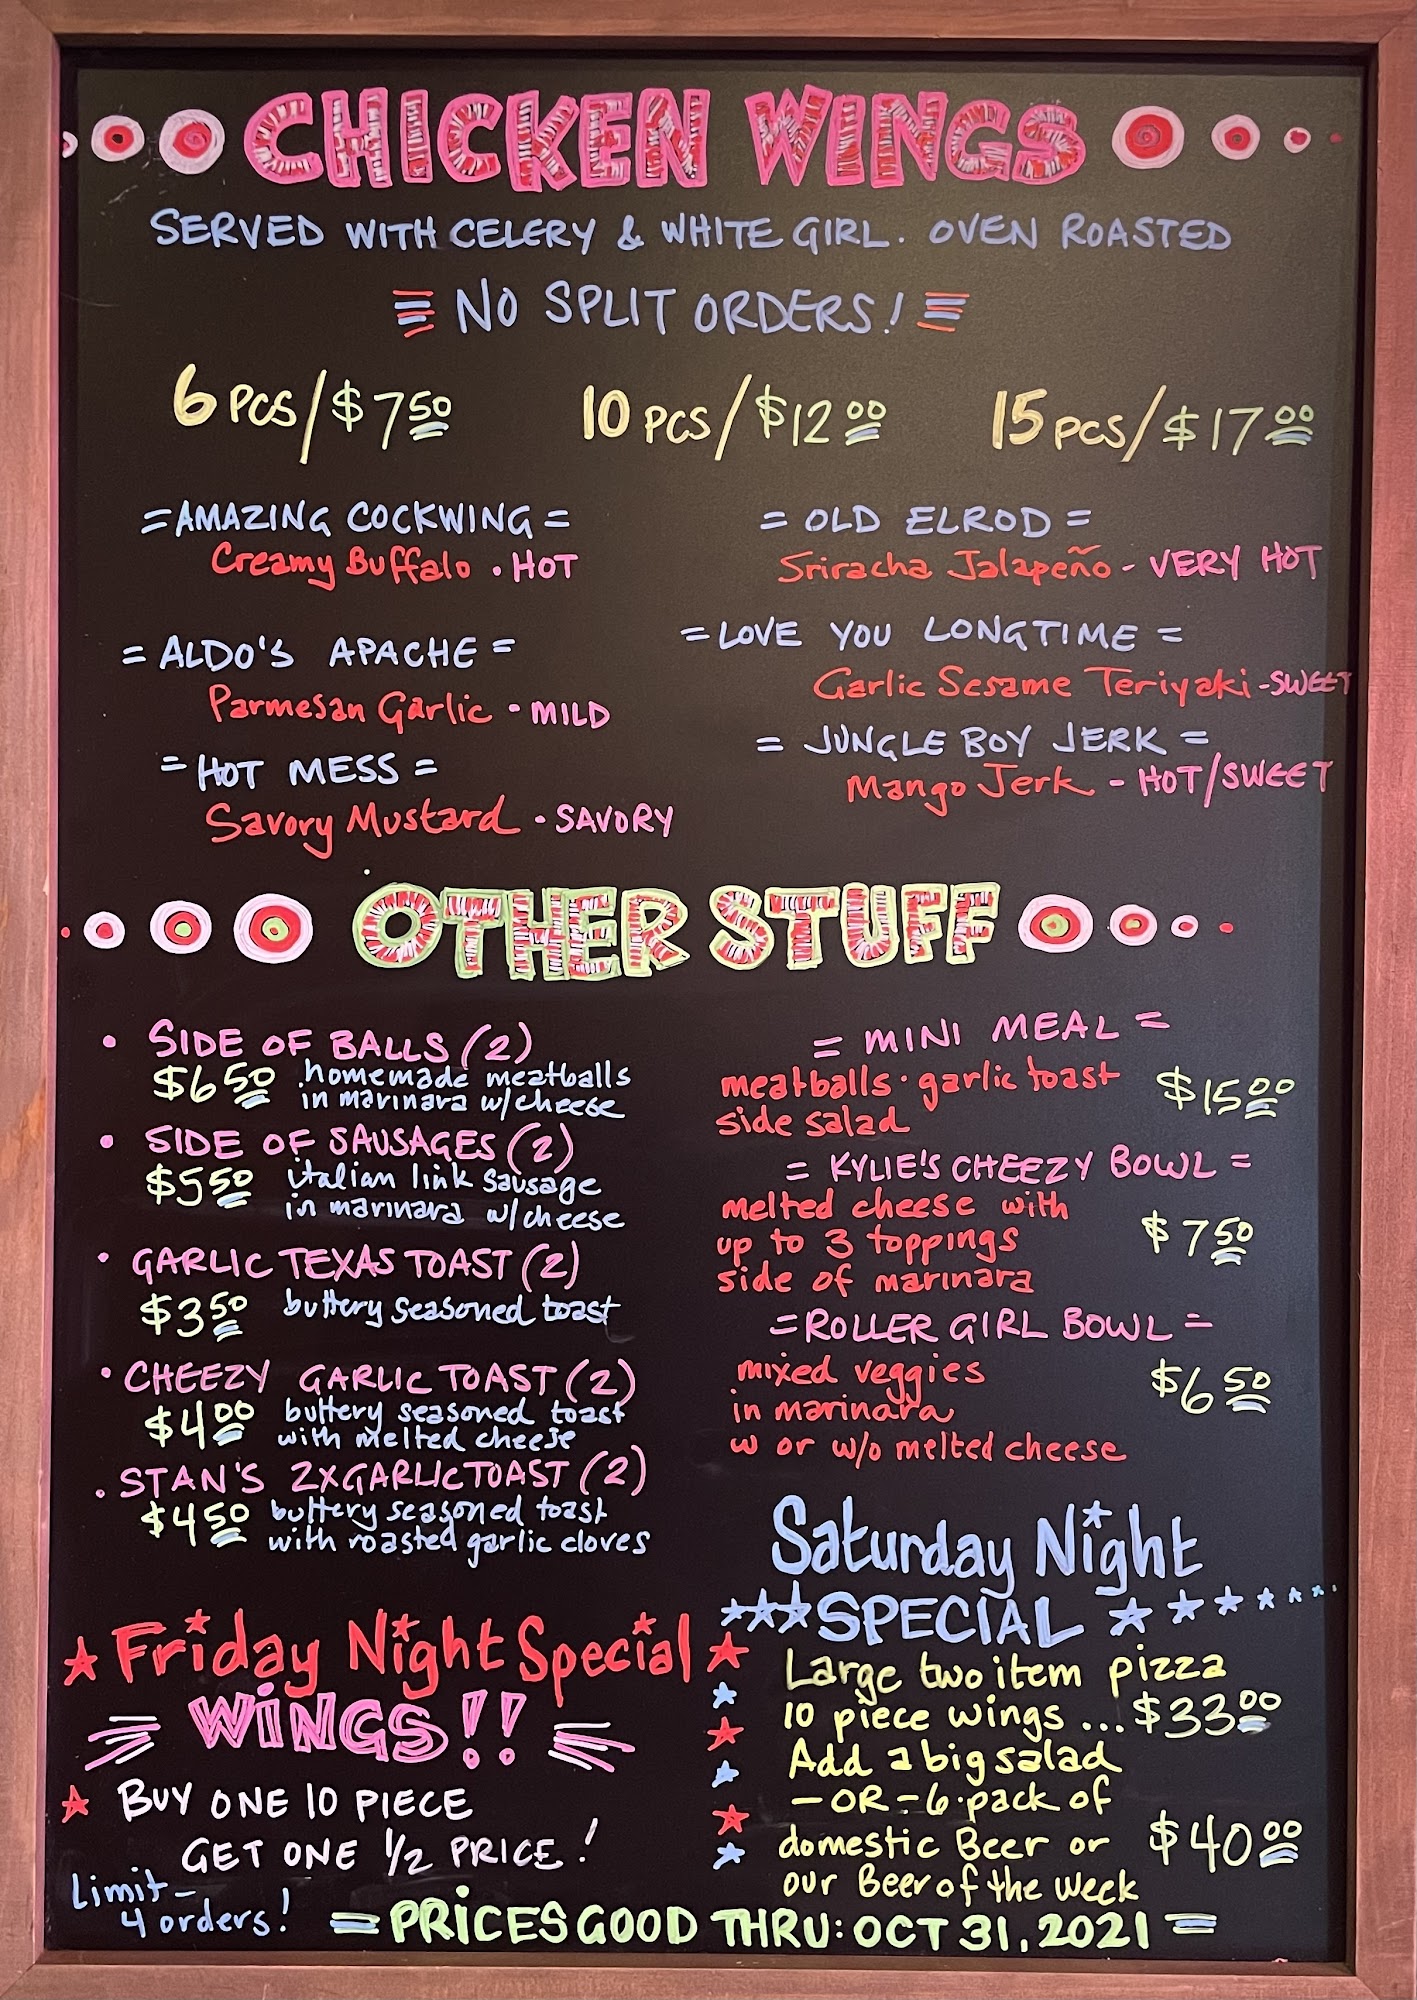 CHICKEN WINGS
SERVED WITH CELERY & WHITE GIRL. OVEN ROASTED
NO SPLIT ORDERS!
6 PCS/$7.50 10 PCS/$12.00 15 PCS/$17.00
=AMAZING COCKWING=
Creamy Buffalo • HOT
= ALDO'S APACHE =
Parmesan Garlic • MILD
= HOT MESS =
Savory Mustard • SAVORY
= OLD ELROD =
Sriracha Jalapeño - VERY HOT
= LOVE YOU LONGTIME =
Garlic Sesame Teriyaki - SWEET
= JUNGLE BOY JERK =
Mango Jerk - HOT/SWEET
OTHER STUFF
• SIDE OF BALLS (2)
$6.50 homemade meatballs
in marinara w/cheese
• SIDE OF SAUSAGES (2)
$5.50 italian link sausage
in marinara w/cheese
• GARLIC TEXAS TOAST (2)
$3.50 buttery seasoned toast
• CHEEZY GARLIC TOAST (2)
$4.00 buttery seasoned toast
with melted cheese
• STAN'S 2X GARLIC TOAST (2)
$4.50 buttery seasoned toast
with roasted garlic cloves
= MINI MEAL =
meatballs • garlic toast
side salad $15.00
= KYLIE'S CHEEZY BOWL =
melted cheese with
up to 3 toppings $7.50
side of marinara
= ROLLER GIRL BOWL =
mixed veggies $6.50
in marinara
w or w/o melted cheese
Friday Night Special
WINGS!!
BUY ONE 10 PIECE
GET ONE 1/2 PRICE!
Limit -
4 orders!
Saturday Night
SPECIAL
Large two item pizza
10 piece wings ... $33.00
Add a big salad
- OR - 6-pack of
domestic Beer or $40.00
our Beer of the week
= PRICES GOOD THRU: OCT 31, 2021 =